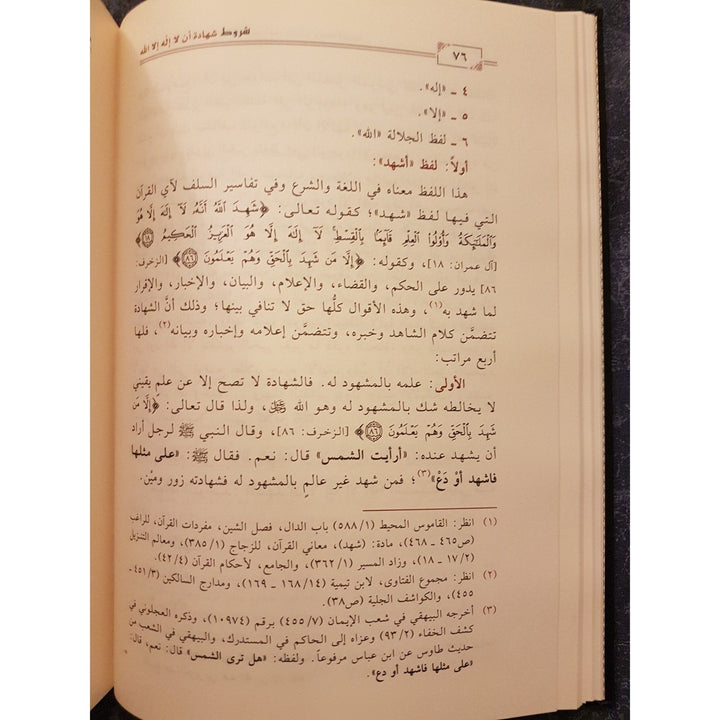 شروط شهادة أن لا إله إلا الله
٧٦
٤ ـ «إله».
٥ ـ «إلا».
٦ ـ لفظ الجلالة «الله».
أولاً: لفظ «أشهد»:
هذا اللفظ معناه في اللغة والشرع وفي تفاسير السلف لآي القرآن
التي فيها لفظ «شهد»؛ كقوله تعالى: ﴿شَهِدَ ٱللَّهُ أَنَّهُۥ لَآ إِلَٰهَ إِلَّا هُوَ
وَٱلْمَلَٰٓئِكَةُ وَأُو۟لُوا۟ ٱلْعِلْمِ قَآئِمًۢا بِٱلْقِسْطِ ۚ لَآ إِلَٰهَ إِلَّا هُوَ ٱلْعَزِيزُ ٱلْحَكِيمُ ١٨﴾
[آل عمران: ١٨]، وكقوله: ﴿إِلَّا مَن شَهِدَ بِٱلْحَقِّ وَهُمْ يَعْلَمُونَ ٨٦﴾ [الزخرف:
٨٦] يدور على الحكم، والقضاء، والإعلام، والبيان، والإخبار، والإقرار
لما شهد به(١)، وهذه الأقوال كلُّها حق لا تنافي بينها؛ وذلك أنَّ الشهادة
تتضمَّن كلام الشاهد وخبره، وتتضمَّن إعلامه وإخباره وبيانه(٢)، فلها
أربع مراتب:
الأولى: علمه بالمشهود له. فالشهادة لا تصح إلا عن علمٍ يقيني
لا يخالطه شك بالمشهود له وهو الله ﷻ، ولذا قال تعالى: ﴿إِلَّا مَن
شَهِدَ بِٱلْحَقِّ وَهُمْ يَعْلَمُونَ ٨٦﴾ [الزخرف: ٨٦]، وقال النبي ﷺ لرجل أراد
أن يشهد عنده: «أرأيت الشمس» قال: نعم. فقال ﷺ: «على مثلها
فاشهد أوْ دَعْ»(٣)؛ فمن شهد غير عالمٍ بالمشهود له فشهادته زور وميْن.
(١) انظر: القاموس المحيط (٥٨٨/١) باب الدال، فصل الشين، مفردات القرآن، للراغب
(ص٤٦٥ ـ ٤٦٨)، مادة: (شهد)، معاني القرآن، للزجاج (٣٨٥/١)، ومعالم التنزيل
(١٧/٢ ـ ١٨)، وزاد المسير (٣٦٢/١)، والجامع، لأحكام القرآن (٤٢/٤).
(٢) انظر: مجموع الفتاوى، لابن تيمية (١٦٨/١٤ ـ ١٦٩)، ومدارج السالكين (٤٥١/٣ ـ
٤٥٥)، والكواشف الجلية (ص٣٨).
(٣) أخرجه البيهقي في شعب الإيمان (٤٥٥/٧) برقم (١٠٩٧٤)، وذكره العجلوني في
كشف الخفاء (٩٣/٢) وعزاه إلى الحاكم في المستدرك، والبيهقي في الشعب من
حديث طاوس عن ابن عباس مرفوعاً. ولفظه: «هل ترى الشمس» قال: نعم، قال:
«على مثلها فاشهد أو دع».